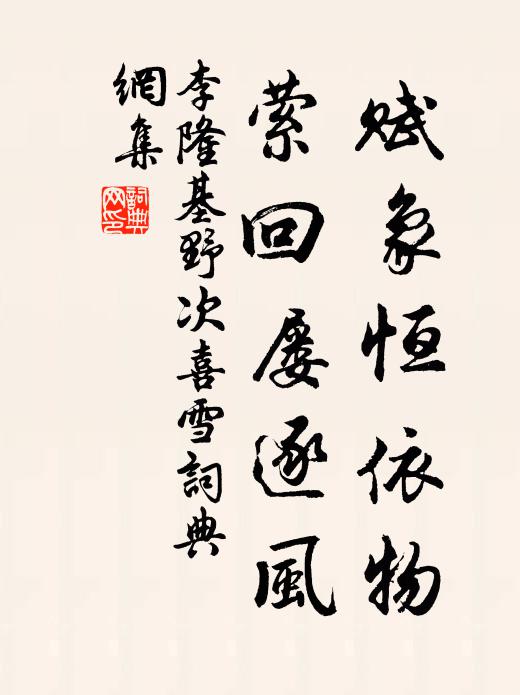 賦象恒依物
縈回屡逐風
李隆基野次喜雪詞典
網集
詞典網印